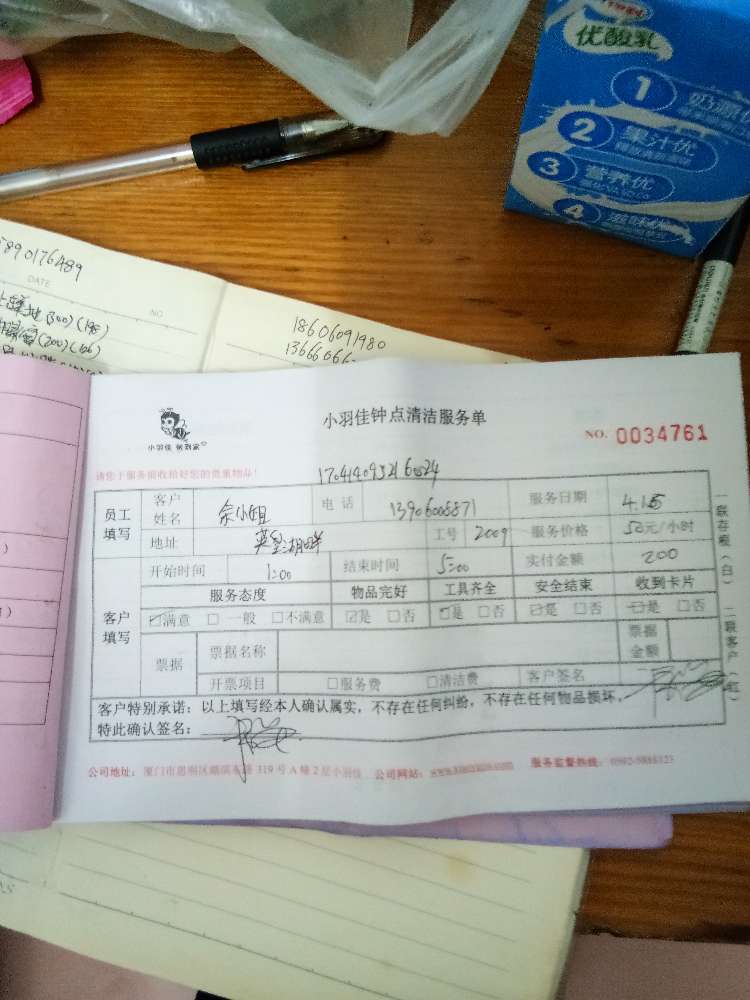 优酸乳
1
2 果汁优
3 营养优
4 滋味优
DATE
NO
18606091980
小羽佳钟点清洁服务单
小羽佳 帮到家
NO. 0034761
请您于服务前收拾好您的贵重物品！
员工填写
客户姓名
余小姐
电话
服务日期
4.15
地址
工号
2009
服务价格
50元/小时
开始时间
1:00
结束时间
5:00
实付金额
200
客户填写
服务态度
物品完好
工具齐全
安全结束
收到卡片
☑满意 □一般 □不满意
☑是 □否
☑是 □否
☑是 □否
☑是 □否
票据
票据名称
票据金额
开票项目
□服务费 □清洁费
客户签名
客户特别承诺：以上填写经本人确认属实，不存在任何纠纷，不存在任何物品损坏，
特此确认签名：
一联存根（白） 二联客户（红）
公司地址：厦门市思明区 319号A幢2层小羽佳 公司网站： 服务监督热线：